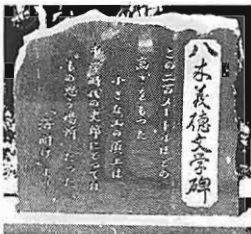 八木義徳文学碑
この二百メートルほどの
高さをもった
小さな山の頂上は
少年時代の史郎にとっては
もの想う場所だった
「海明け」より